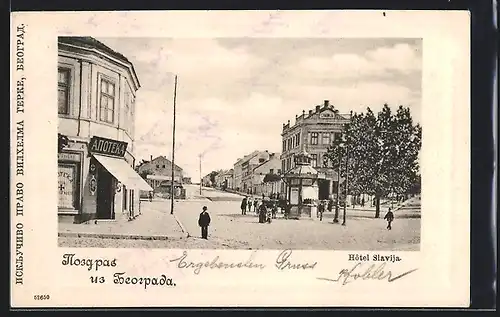 ИСКЉУЧИВО ПРАВО ВИЛХЕЛМА ГЕРКЕ, БЕОГРАД.
АПОТЕКА
Hôtel Slavija
Поздрав
из Београда.
Ergebensten Gruss
Kobler
51650